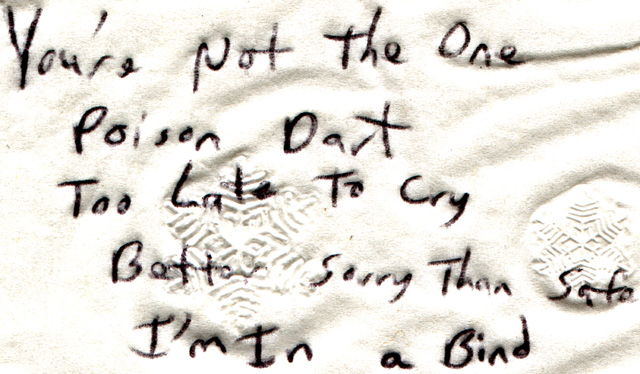 You're Not The One
Poison Dart
Too Late To Cry
Better Sorry Than Safe
I'm In a Bind